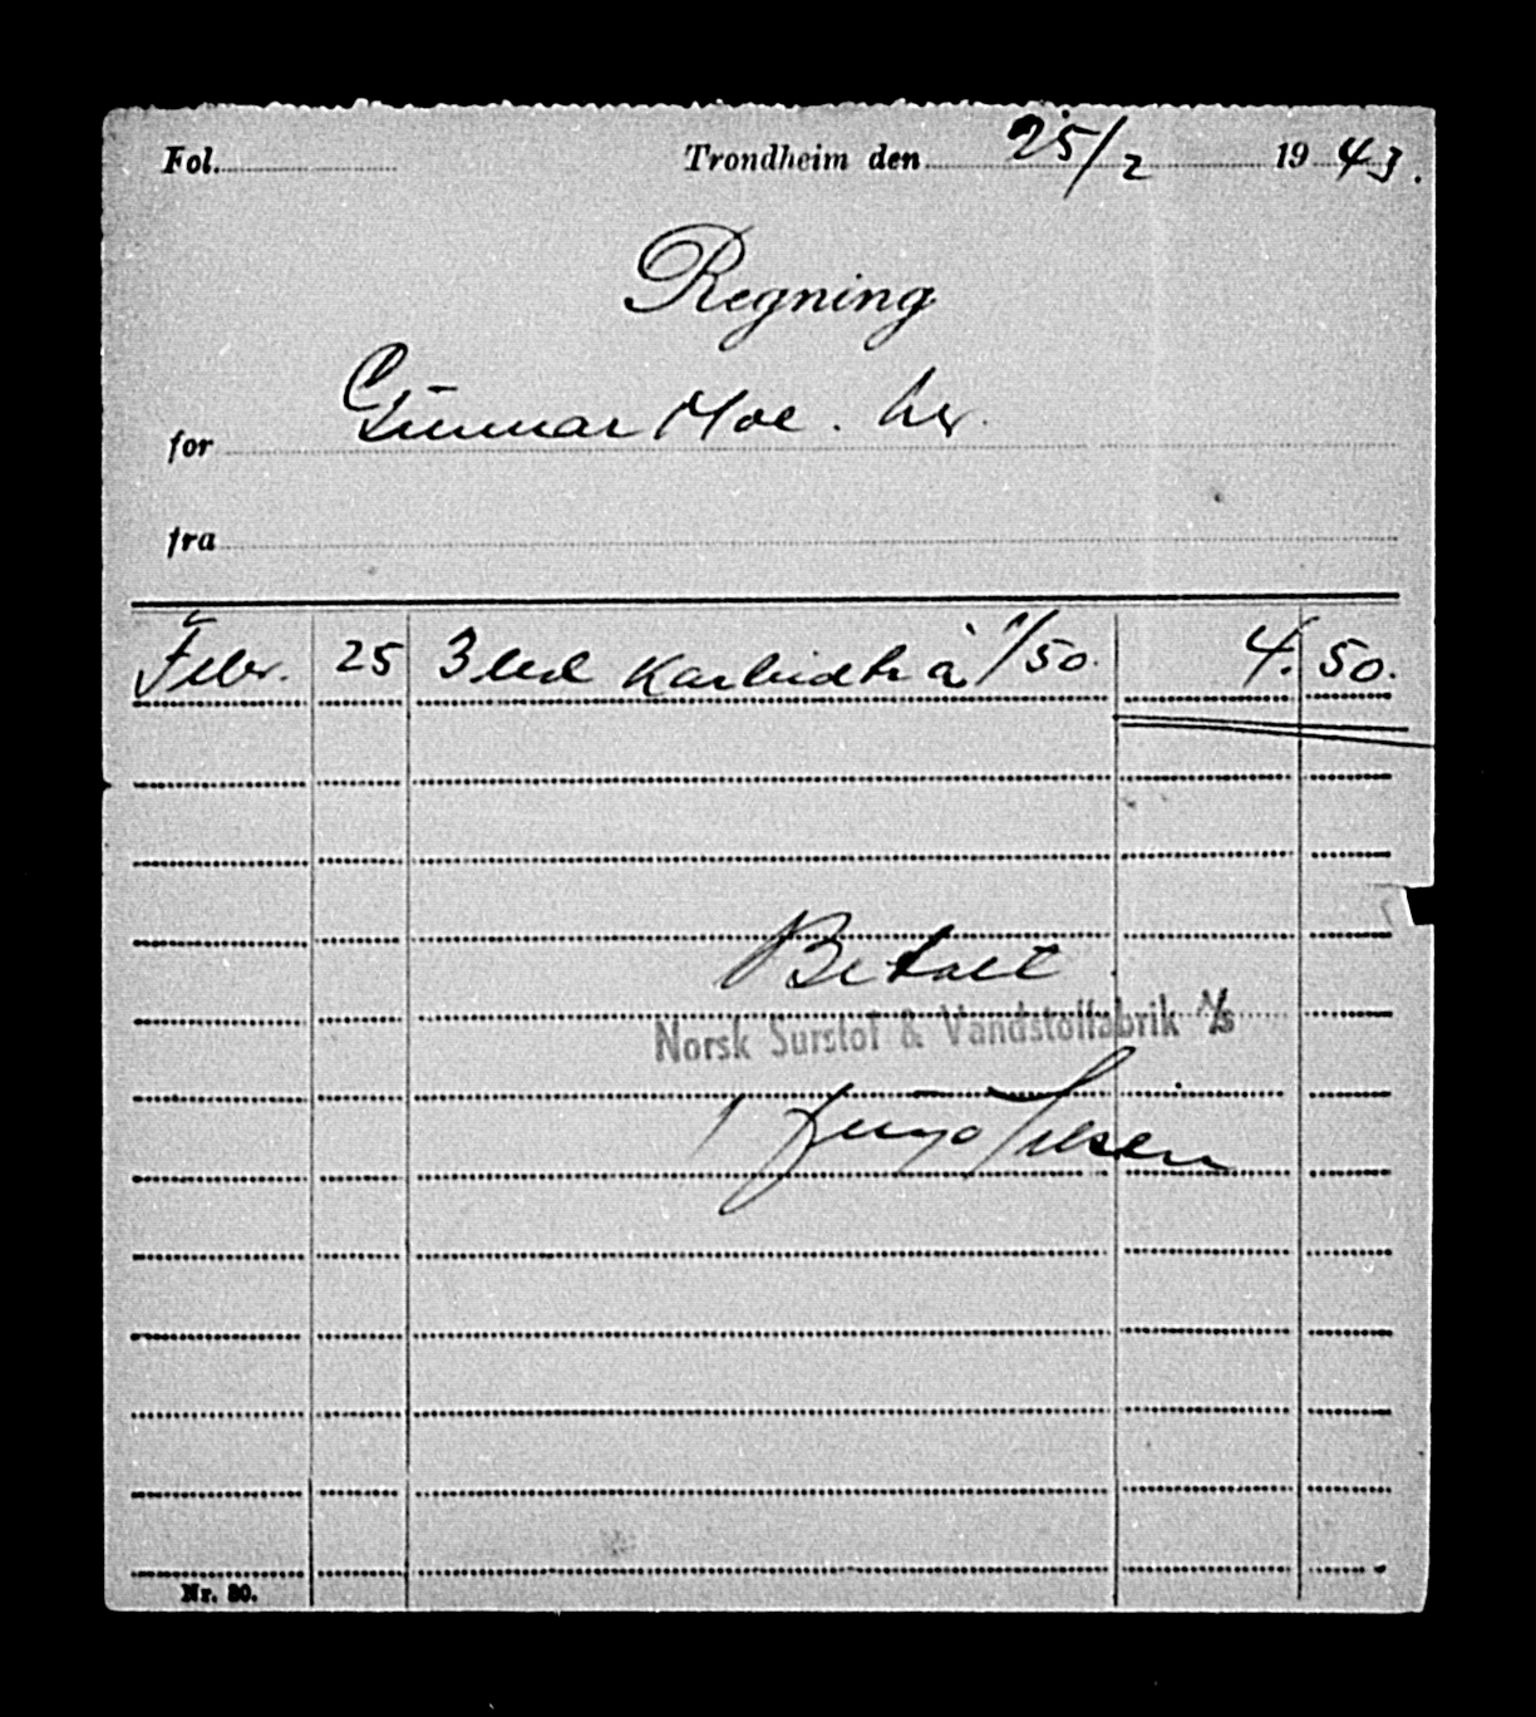 Fol. Trondheim den 25/2 1943.
Regning
for Gunnar Moe. her.
fra
Febr. 25 3 à 1/50. 4. 50.
Betalt
Norsk Surstof & Vandstoffabrik A/S
Nr. 30.